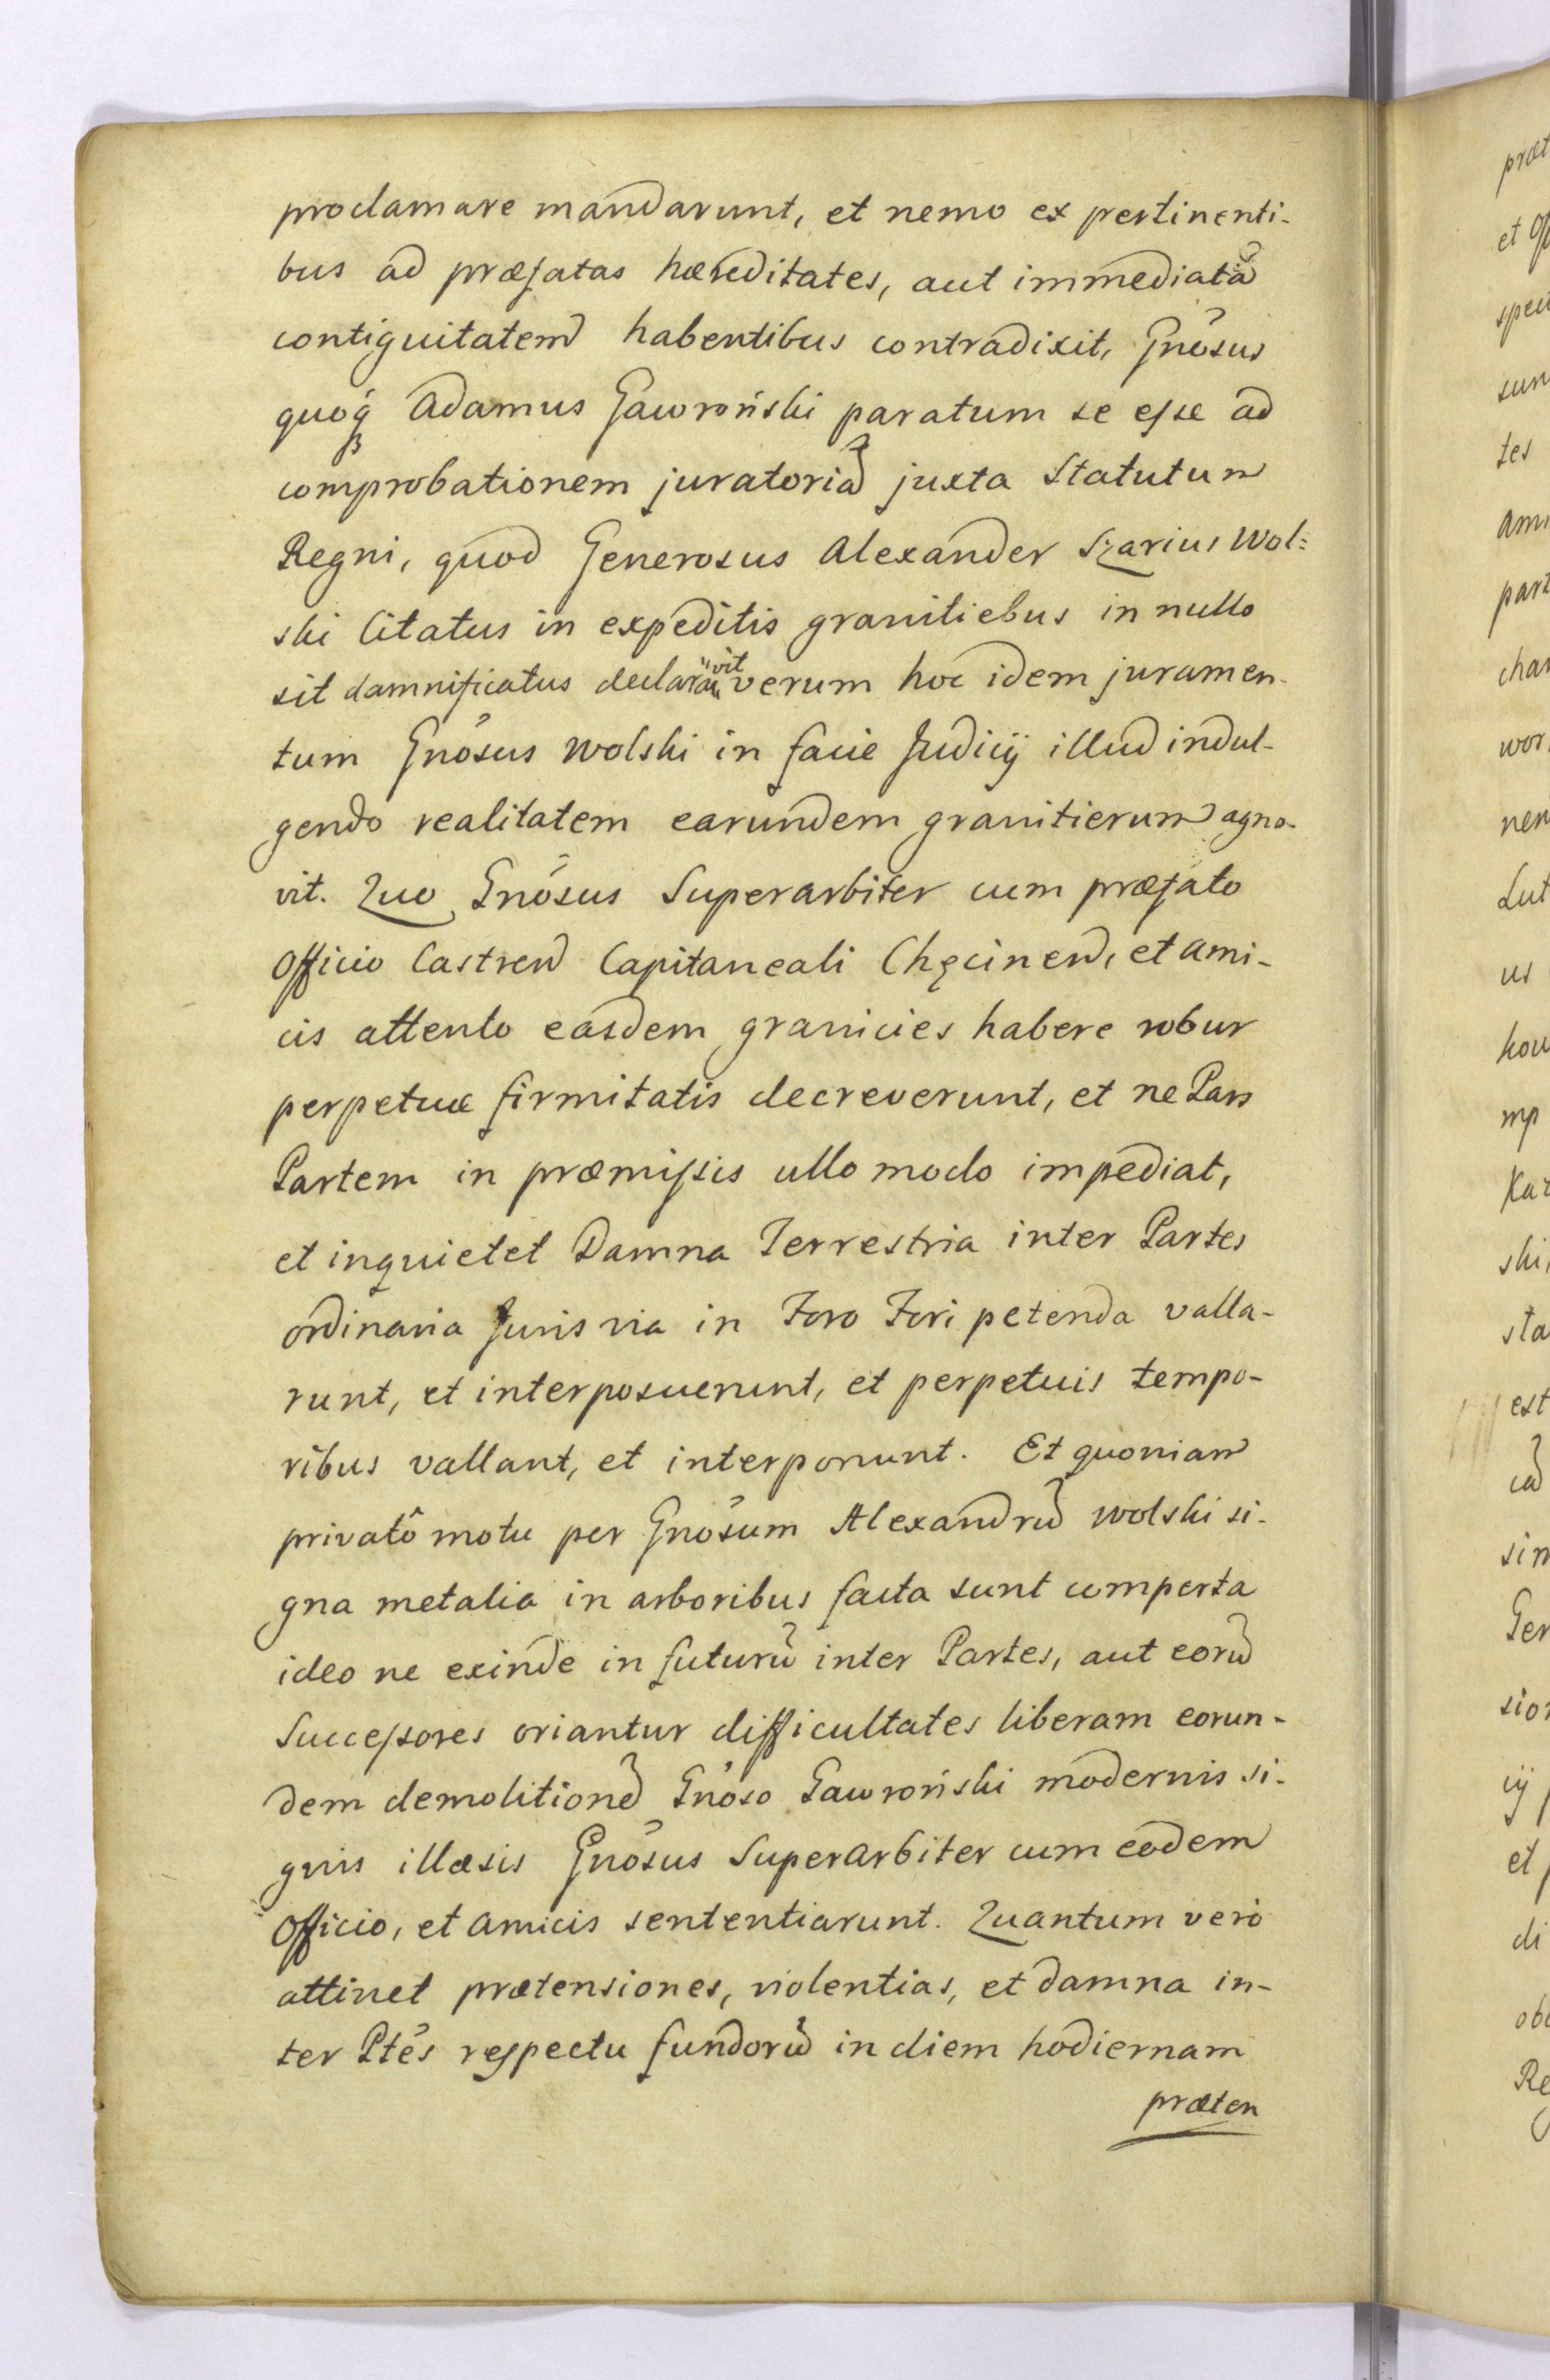 proclamare mandarunt, et nemo ex pertinenti-
bus ad præfatas hæreditates, aut immediatã
contiguitatem habentibus contradixit, Gnõsus
quoq́ Adamus Gawroński paratum se esse ad
comprobationem juratoriã juxta Statutum
Regni, quod Generosus Alexander Szarius Wol:
ski Citatus in expeditis granitiebus in nullo
sit damnificatus declaravit verum hoc idem juramen-
tum Gnõsus Wolski in facie Judicij illud indul-
gendo realitatem earundem granitierum agno-
vit. Quo Gnõsus Superarbiter cum præfato
Officio Castren Capitaneali Chęcinen, et ami-
cis attento easdem granicies habere robur
perpetuæ firmitatis decreverunt, et ne Pars
Partem in præmissis ullo modo impediat,
et inquietet Damna Terrestria inter Partes
ordinaria Juris via in Foro Fori petenda valla-
runt, et interposuerunt, et perpetuis tempo-
ribus vallant, et interponunt. Et quoniam
privatô motu per Gnõsum Alexandrũ Wolski si-
gna metalia in arboribus facta sunt comperta
ideo ne exinde in futurũ inter Partes, aut eorũ
Successores oriantur difficultates liberam eorun-
dem demolitionẽ Gnõso Gawroński modernis si-
gnis illæsis Gnõsus Superarbiter cum eodem
Officio, et amicis sententiarunt. Quantum verò
attinet prætensiones, violentias, et damna in-
ter Ptẽs respectu fundorũ in diem hodiernam
præten
præt
et
tes
part
us
mp
ski,
sta
est
cã
sim
ij
et
di